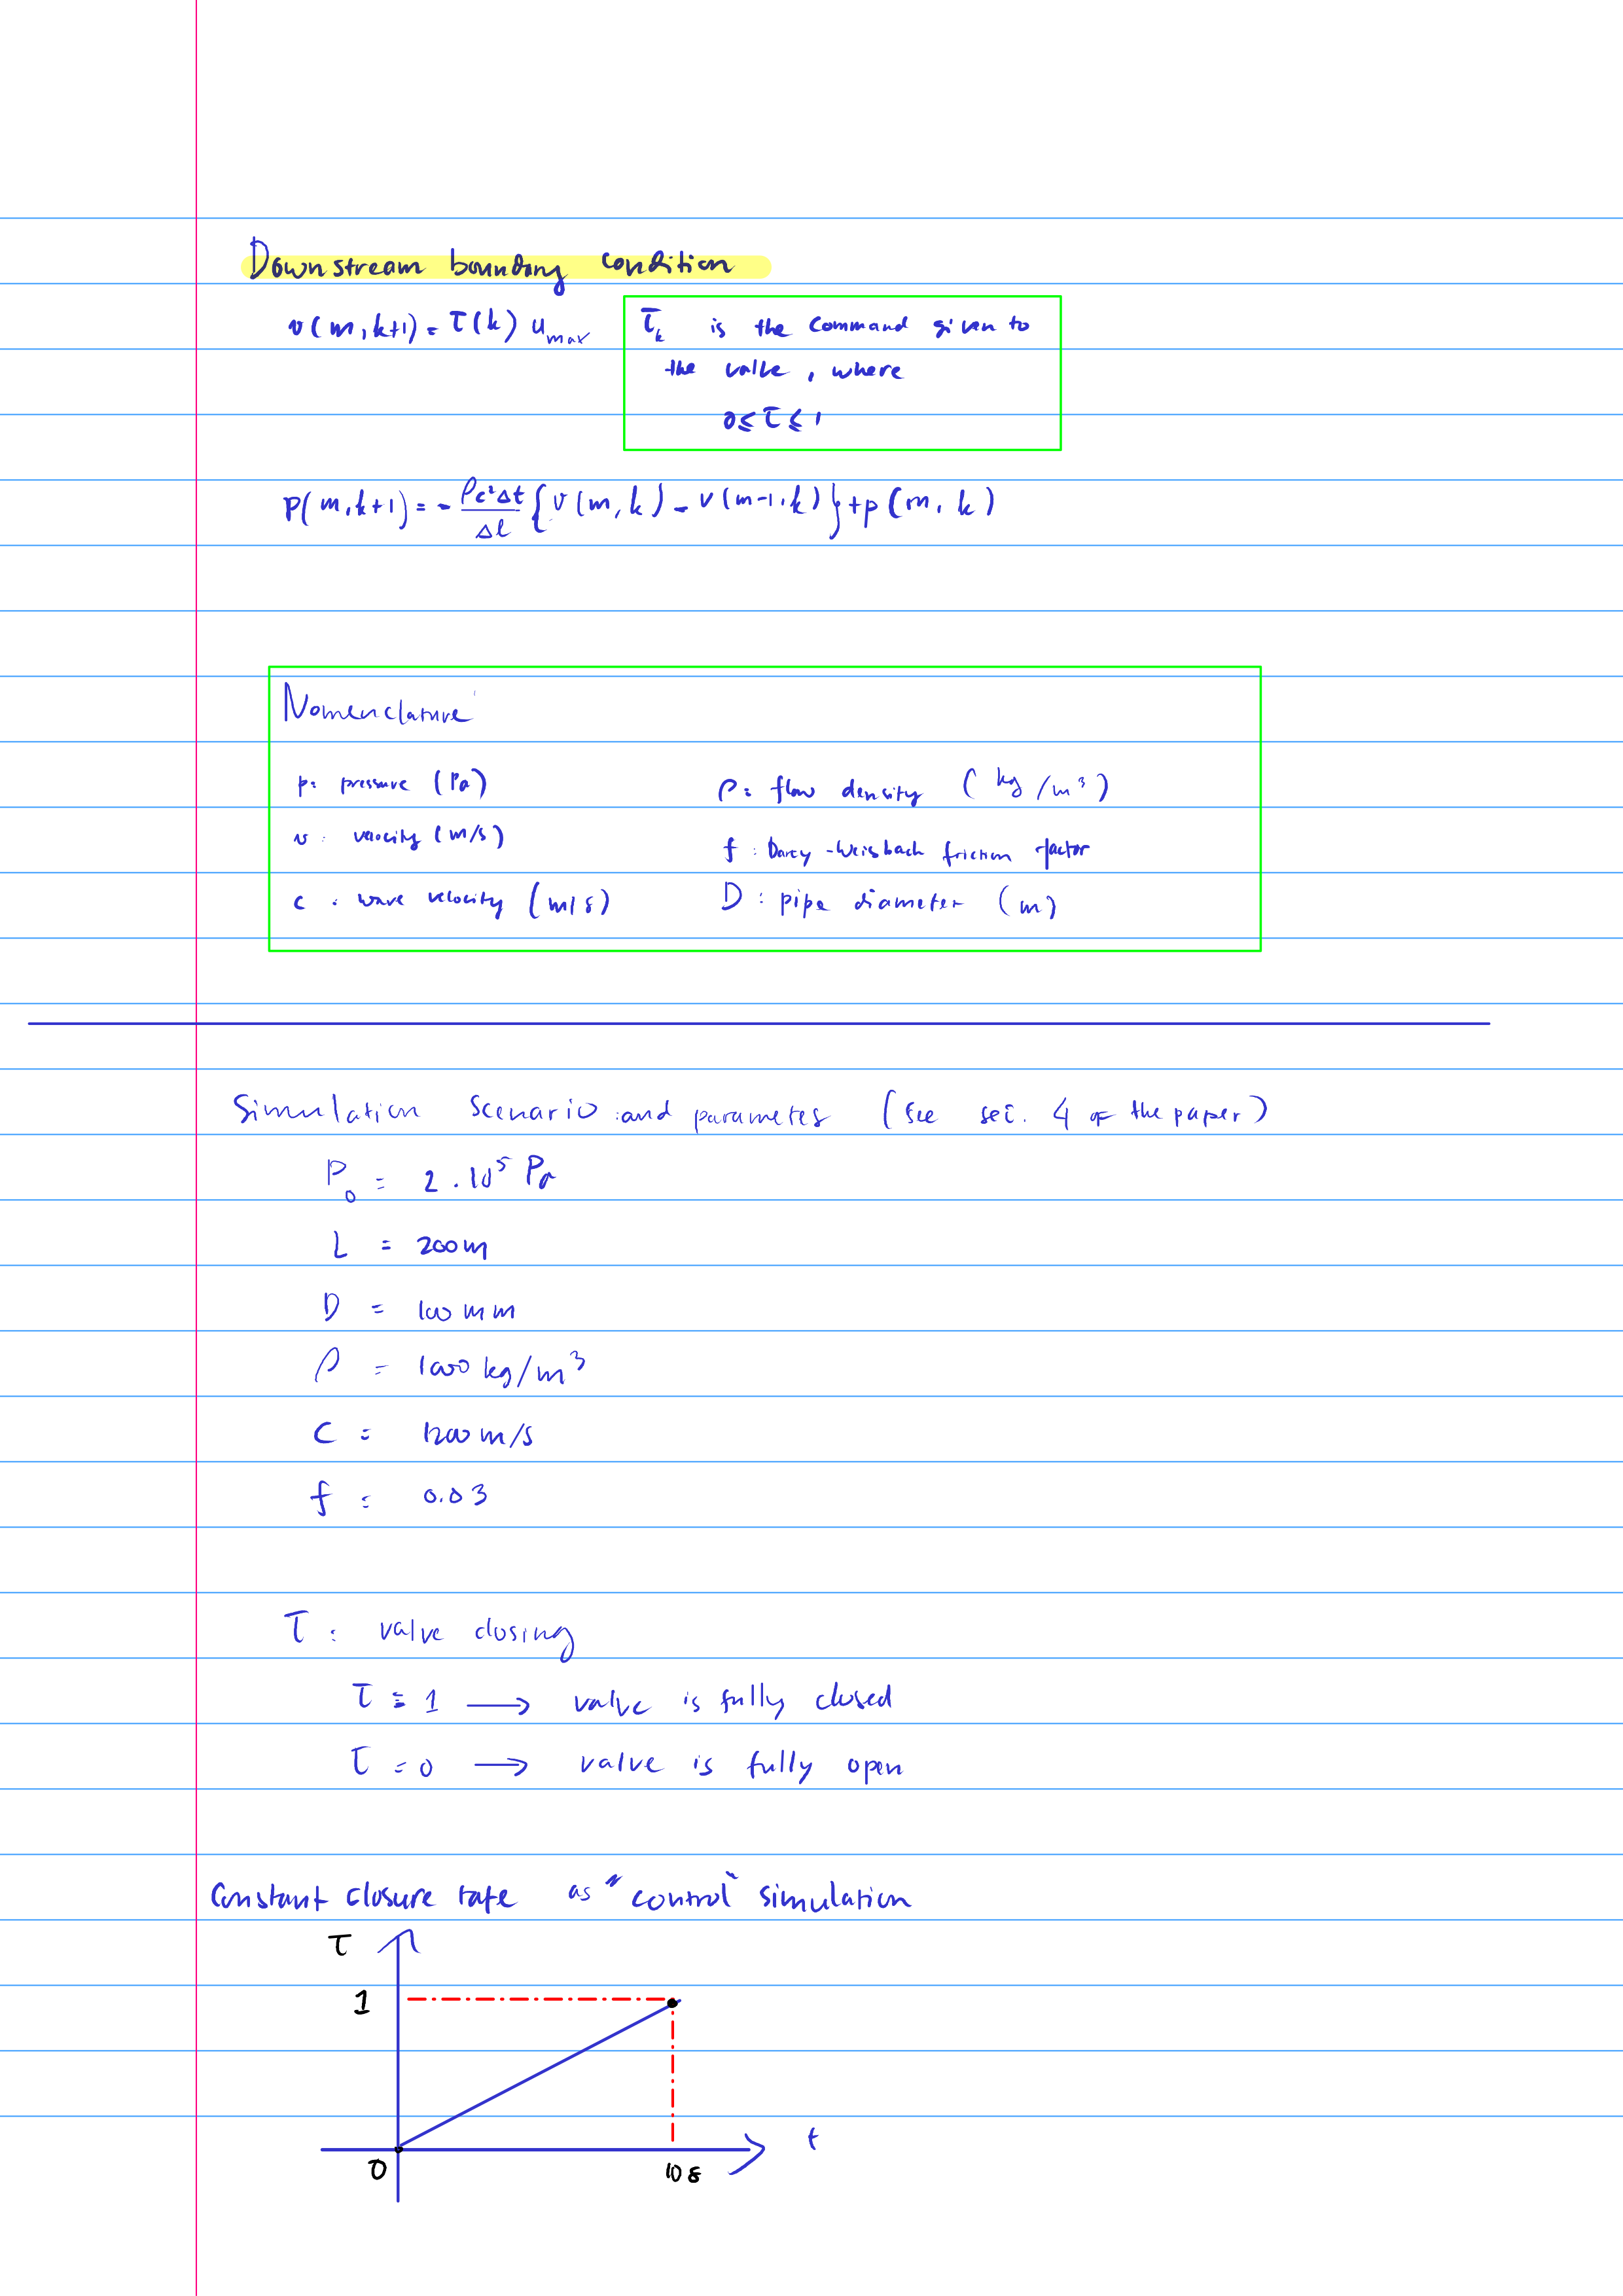 Downstream boundary condition
v(m,k+1) = τ(k) u_max
τ_k is the command given to
the valve, where
0 ≤ τ ≤ 1
p(m,k+1) = - ρc²Δt/Δl {v(m,k) - v(m-1,k)} + p(m,k)
Nomenclature
p: pressure (Pa)
ρ: flow density (kg/m³)
v: velocity (m/s)
f: Darcy-Weisbach friction factor
c: wave velocity (m/s)
D: pipe diameter (m)
Simulation scenario and parametes (see sec. 4 of the paper)
P₀ = 2.10⁵ Pa
L = 200 m
D = 100 mm
ρ = 1000 kg/m³
C = 1200 m/s
f = 0.03
τ: valve closing
τ = 1 → valve is fully closed
τ = 0 → valve is fully open
Constant closure rate as "control" simulation
τ
1
t
0
10 s